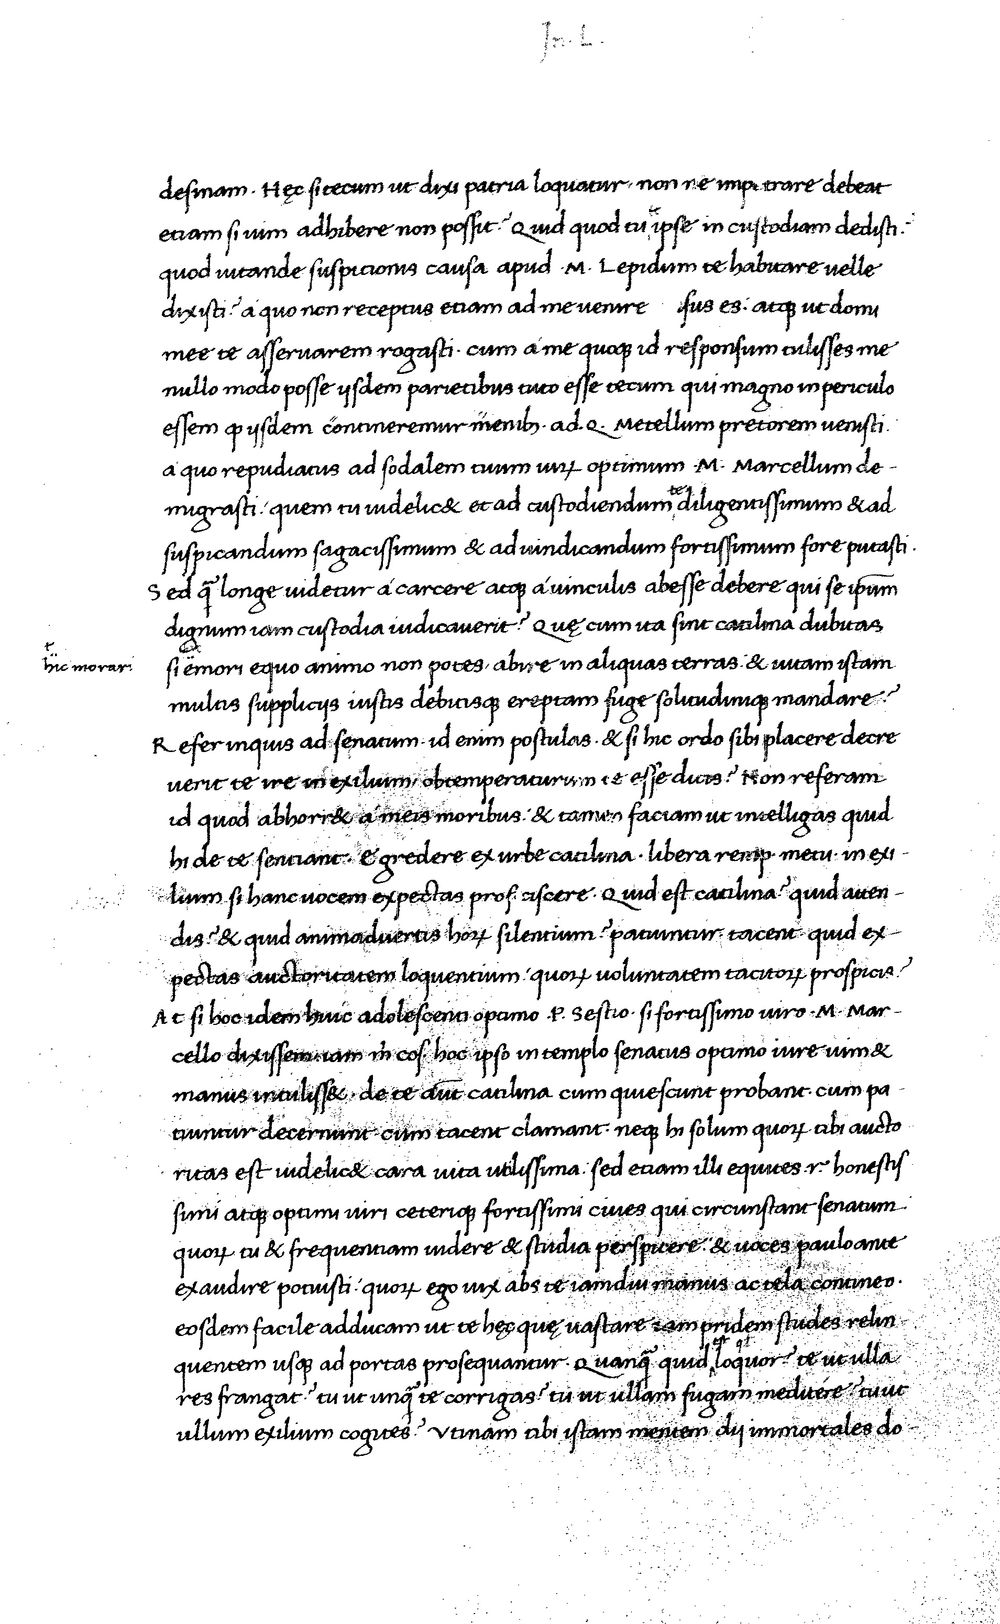 In. L.
desinam. Hęc si tecum ut dixi patria loquatur. non ne impetrare debeat
etiam si uim adhibere non possit? Quid quod tu ipse in custodiam dedisti.
quod uitande suspicionis causa apud .M. Lepidum te habitare uelle
dixisti? a quo non receptus etiam ad me uenire sus es. atq ut domi
mee te asseruarem rogasti. cum a me quoq id responsum tulisses me
nullo modo posse ijsdem parietibus tuto esse tecum qui magno in periculo
essem ꝙ ijsdem contineremur menibꝫ. ad .Q. Metellum pretorem uenisti.
a quo repudiatus ad sodalem tuum uirꝝ optimum .M. Marcellum de-
migrasti. quem tu uidelic& et ad custodiendum te diligentissimum & ad
suspicandum sagacissimum & ad uindicandum fortissimum fore putasti.
Sed q̃ longe uidetur a carcere atq a uinculis abesse debere qui se ipum
dignum iam custodia iudicauerit? Quę cum ita sint catilina dubitas
hic morari
si emori equo animo non potes. abire in aliquas terras. & uitam istam
multis supplicijs iustis debitisq ereptam fuge solitudiniq mandare?
Refer inquis ad senatum. id enim postulas. & si hic ordo sibi placere decre
uerit te ire in exilium. obtemperaturum te esse dicis? Non referam
id quod abhorr& a meis moribus. & tamen faciam ut intelligas quid
hi de te sentiant. Egredere ex urbe catilina. libera remp. metu. in exi-
lium si hanc uocem expectas proficiscere. Quid est catilina? quid atten-
dis? & quid animaduertis horꝝ silentium? patiuntur. tacent. quid ex-
pectas auctoritatem loquentium. quorꝝ uoluntatem tacitorꝝ prospicis?
At si hoc idem huic adolescenti optimo .P. Sestio. si fortissimo uiro .M. Mar-
cello dixissem. iam m cos. hoc ipso in templo senatus optimo iure uim &
manus intuliss&. de te aut catilina cum quiescunt probant. cum pa-
tiuntur decernunt. cum tacent clamant. neq hi solum quorꝝ tibi aucto
ritas est uidelic& cara uita utilissima. sed etiam illi equites .r. honestis
simi atq optimi uiri ceteriq fortissimi ciues qui circunstant senatum.
quorꝝ tu & frequentiam uidere & studia perspicere. & uoces paulo ante
exaudire potuisti. quorꝝ ego uix abs te iamdiu manus ac tela contineo.
eosdem facile adducam ut te hęc quę uastare iam pridem studes relin
quentem usq ad portas prosequantur. Quanq̃ quid loquor? te ut ulla
res frangat? tu ut unq̃ te corrigas? tu ut ullam fugam meditere? tu ut
ullum exilium cogites? Vtinam tibi istam mentem dij immortales do-